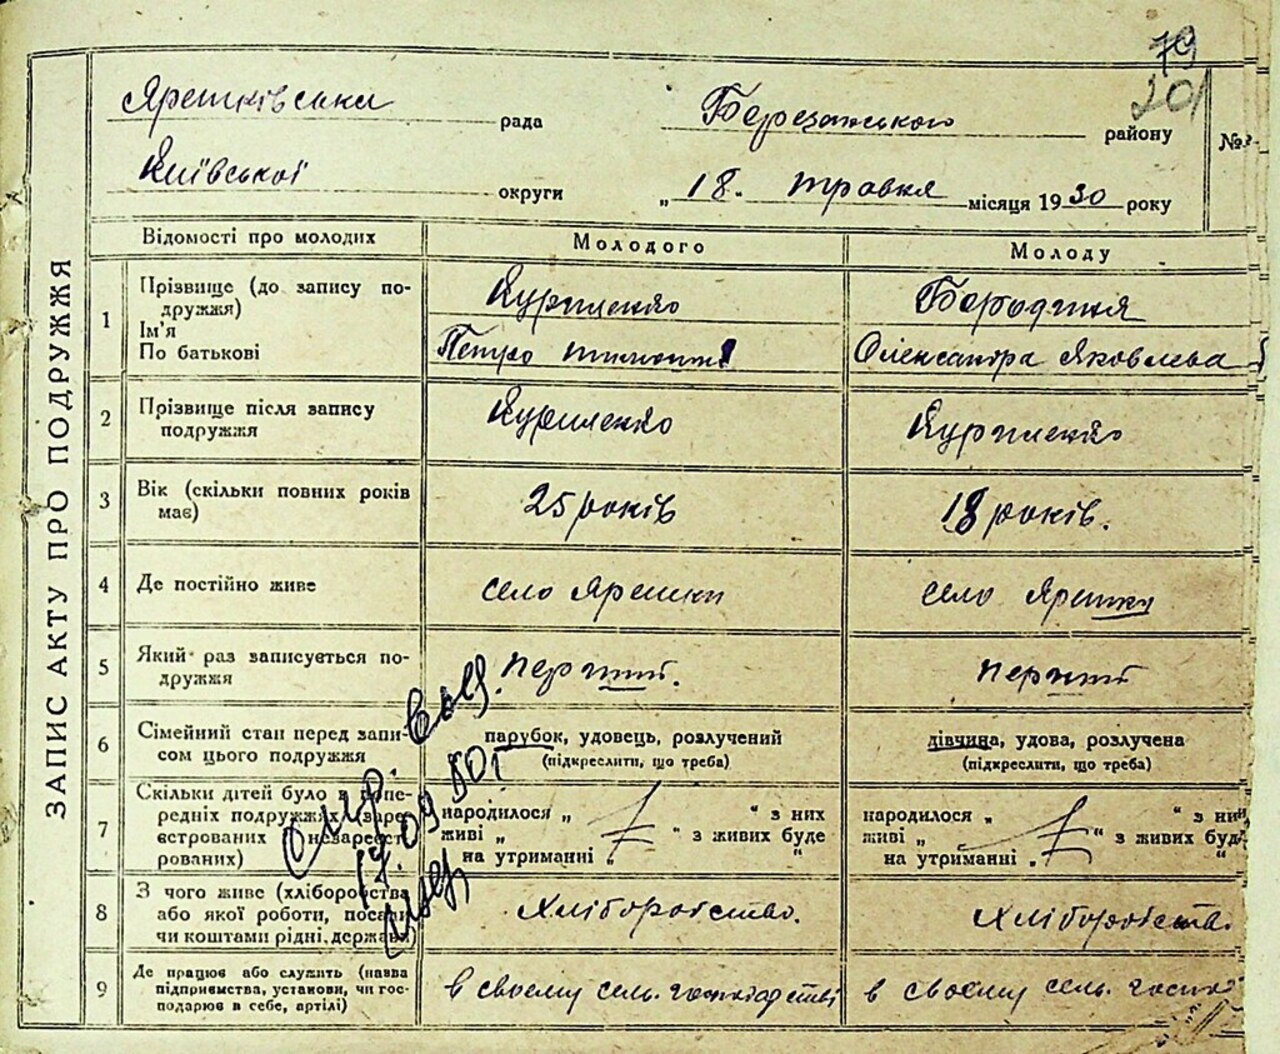 79
201
Ярешківська рада Березанського району №
Київської округи „ 18 " травня місяця 1930 року
ЗАПИС АКТУ ПРО ПОДРУЖЖЯ
Відомості про молодих Молодого Молоду
1 Прізвище (до запису по-
дружжя)
Ім'я
По батькові
Куриленко
Петро
Бородиня
Олександра Яковлева
2 Прізвище після запису
подружжя
Куриленко
Куриленко
3 Вік (скільки повних років
має)
25 років
18 років.
4 Де постійно живе
село Ярешки
село Ярешки
5 Який раз записується по-
дружжя
перший.
перший
6 Сімейний стан перед запи-
сом цього подружжя
парубок, удовець, розлучений
(підкреслити, що треба)
дівчина, удова, розлучена
(підкреслити, що треба)
7 Скільки дітей було в попе-
редніх подружжях (заре-
єстрованих і незареєст-
рованих)
народилося „ “ з них
живі „ “ з живих буде
на утриманні „ “
народилося „ “ з них
живі „ “ з живих буде
на утриманні „ “
8 З чого живе (хліборобства
або якої роботи, посади
чи коштами рідні, держави)
Хліборобство.
Хліборобств.
9 Де працює або служить (назва
підприємства, установи, чи гос-
подарює в себе, артілі)
в своєму сель. господарстві
в своєму сель. госпо
17.09 80г